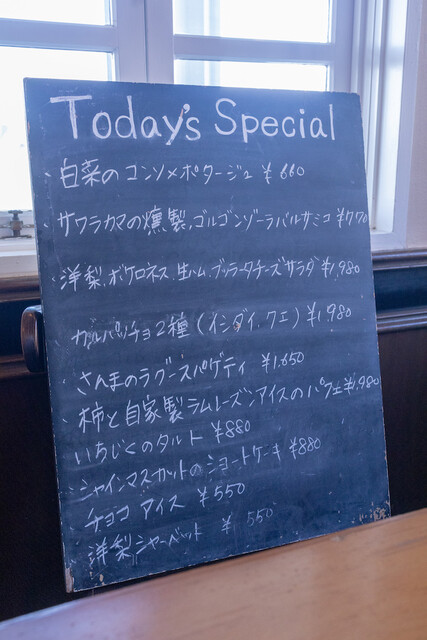 Today's Special
・白菜のコンソメポタージュ ¥660
・サワラカマの燻製,ゴルゴンゾーラバルサミコ ¥770
・洋梨,ボケロネス,生ハム,ブッラータチーズサラダ ¥1,980
カルパッチョ2種(イシダイ,クエ) ¥1,980
・さんまのラグースパゲティ ¥1,650
・柿と自家製ラムレーズンアイスのパフェ ¥1,980
・いちじくのタルト ¥880
・シャインマスカットのショートケーキ ¥880
チョコアイス ¥550
洋梨シャーベット ¥550